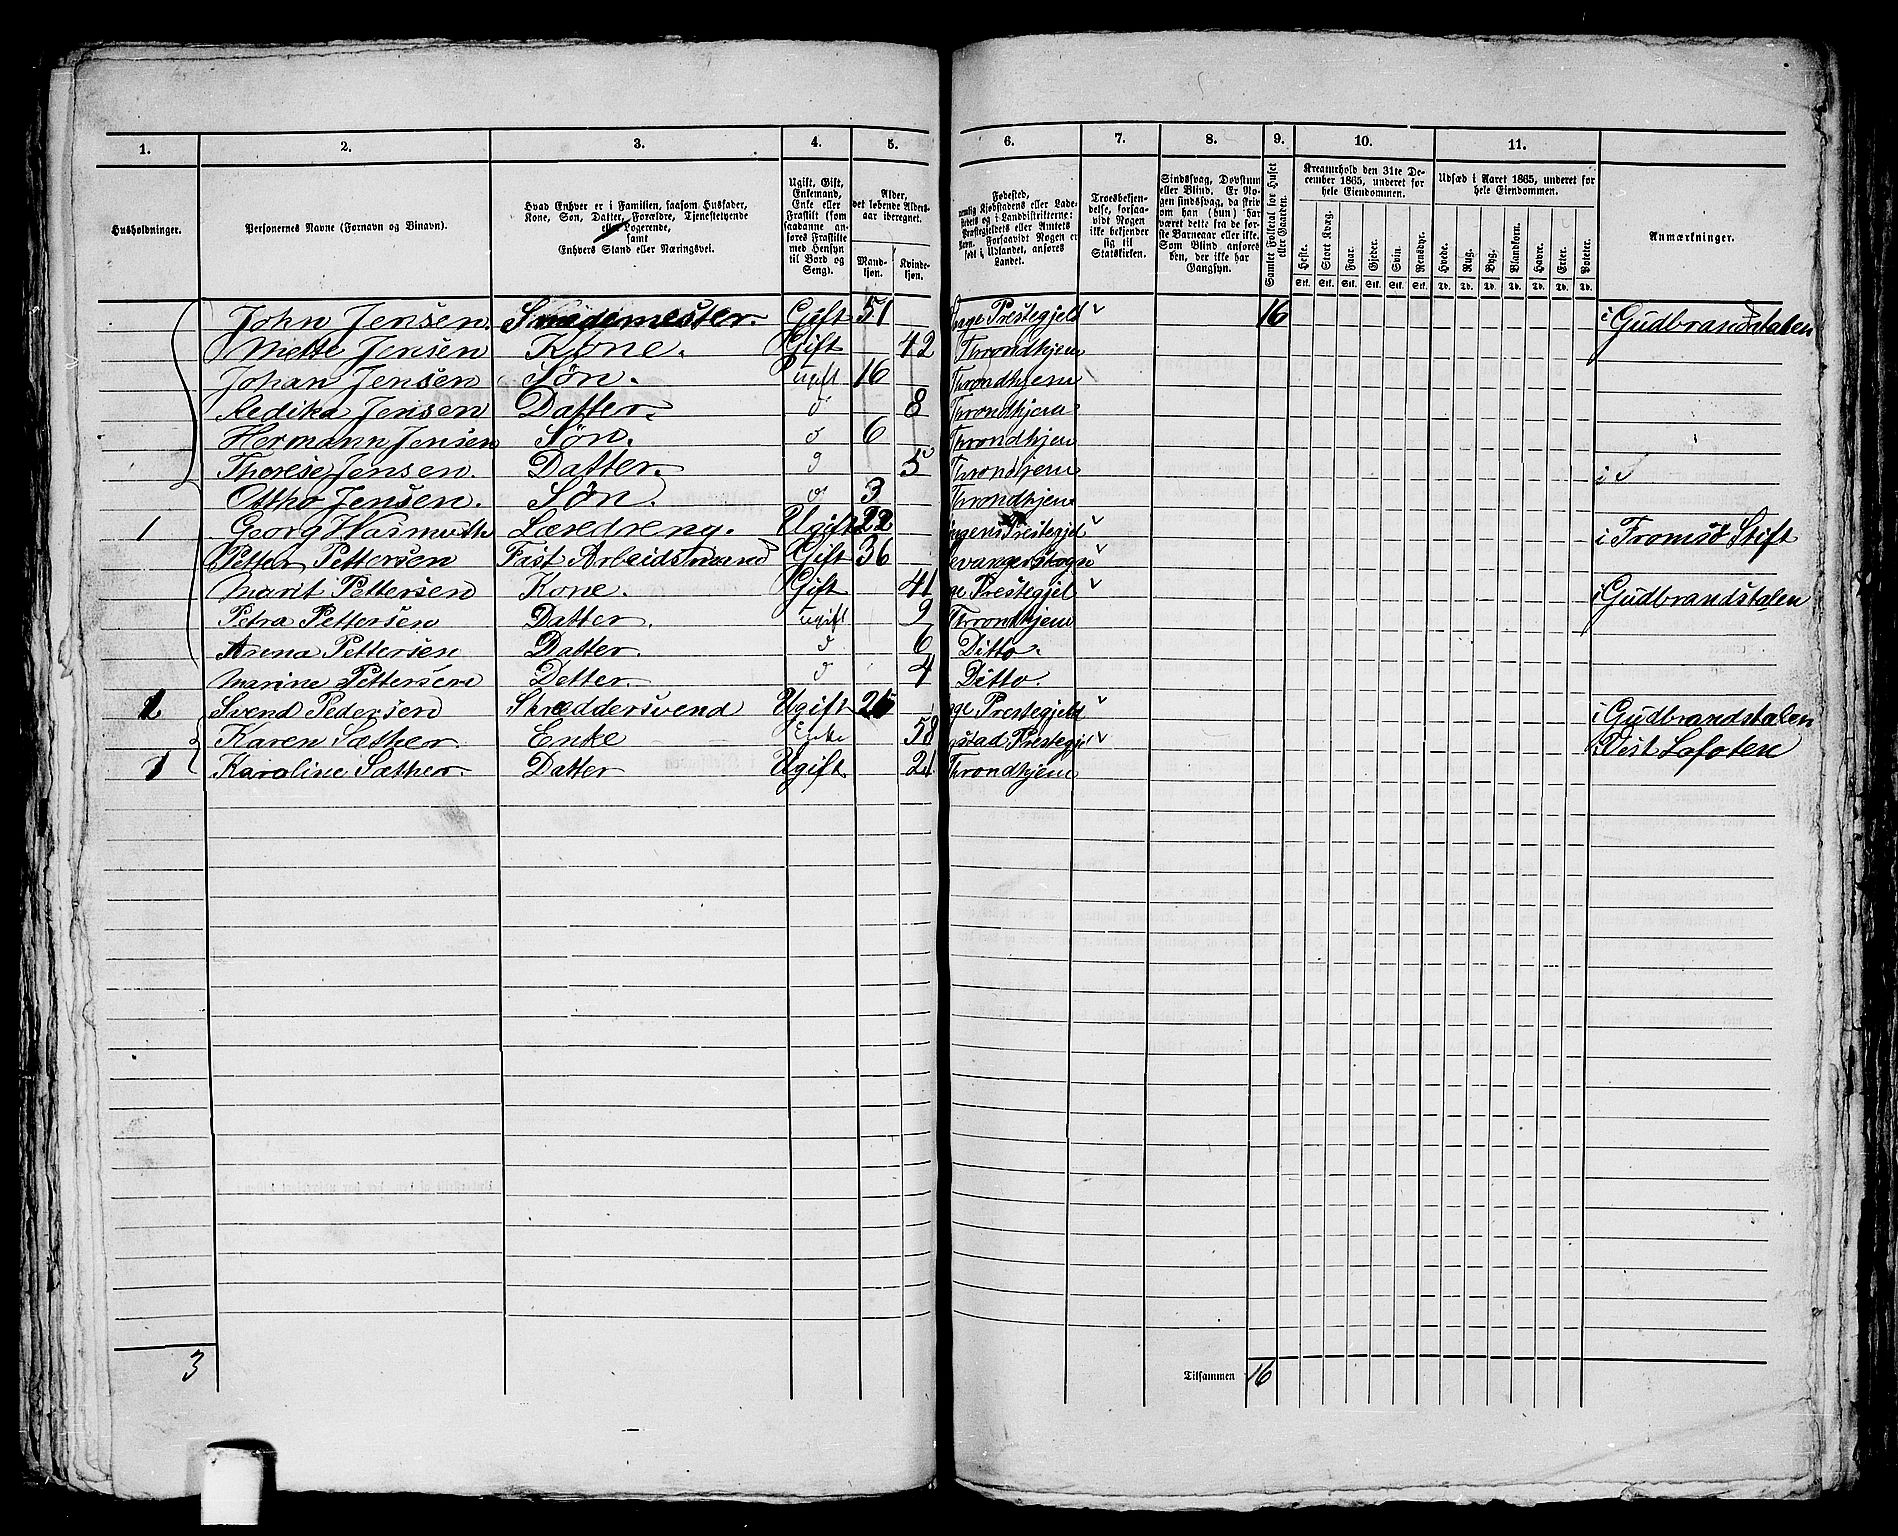 1. 2. 3. 4. 5. 6. 7. 8. 9. 10. 11.
Husholdninger.
Personernes Navne (Fornavn og Binavn).
Hvad Enhver er i Familien, saasom Husfader,
Kone, Søn, Datter, Forældre, Tjenestetyende
eller Logerende,
samt
Enhvers Stand eller Næringsvei.
Ugift, Gift,
Enkemand,
Enke eller
Fraskilt (som
saadanne an-
føres Fraskilte
med Hensyn
til Bord og
Seng).
Alder,
det løbende Alders-
aar iberegnet.
Mand-
kjøn.
Kvinde-
kjøn.
Fødested,
nemlig Kjøbstadens eller Lade-
stedets og i Landdistrikterne:
Præstegjeldets eller Amtets
Navn. Forsaavidt Nogen er
født i Udlandet, anføres
Landet.
Troesbekjen-
delse, forsaa-
vidt Nogen
ikke bekjender
sig til
Statskirken.
Sindssvag, Døvstum
eller Blind. Er No-
gen sindssvag, da skriv
om han (hun) har
været dette fra de før-
ste Barneaar eller ikke.
Som Blind anføres
den, der ikke har
Gangsyn.
Samlet Folketal for Huset
eller Gaarden.
Kreaturhold den 31te De-
cember 1865, underet for
hele Eiendommen.
Heste. Stort Kvæg. Faar. Gjeder. Svin. Rensdyr.
Stk. Stk. Stk. Stk. Stk. Stk.
Udsæd i Aaret 1865, underet for
hele Eiendommen.
Hvede. Rug. Byg. Blandkorn. Havre. Erter. Poteter.
Td. Td. Td. Td. Td. Td. Td.
Anmærkninger.
John Jensen. Snedemester. Gift 51 Præstegjeld 16 i Gudbrandstalen
Mette Jensen Kone. Gift 42 Throndhjem
Johan Jensen Søn. ugift 16 Throndhjem
Jensen Datter. d 8 Throndhjem
Hermann Jensen Søn. d 6 Throndhjem
Therese Jensen. Datter. d 5 Throndhjem i
Ottho Jensen. Søn. d 3 Throndhjem
1 Georg Læredreng. Ugift 22 Prestegjel i Tromsø Stift
Petter Pettersen Fast Arbeidsmand Gift 36 evangerskogn
Marit Pettersen Kone. Gift 41 Prestegjel i Gudbrandstalen
Petra Pettersen Datter. ugift 9 Throndhjem
Arena Pettersen Datter. d 6 Ditto.
Marine Pettersen Detter. d 4 Ditto.
Svend Pedersen Skræddersvend Ugift 26 Prestegjeld i Gudbrandstalen
Karen Sæther. Enke Enke 58 Prestegjel Vest Lofoten
1 Karoline Sæther. Datter Ugift. 21 Throndhjem
3
Tilsammen 16